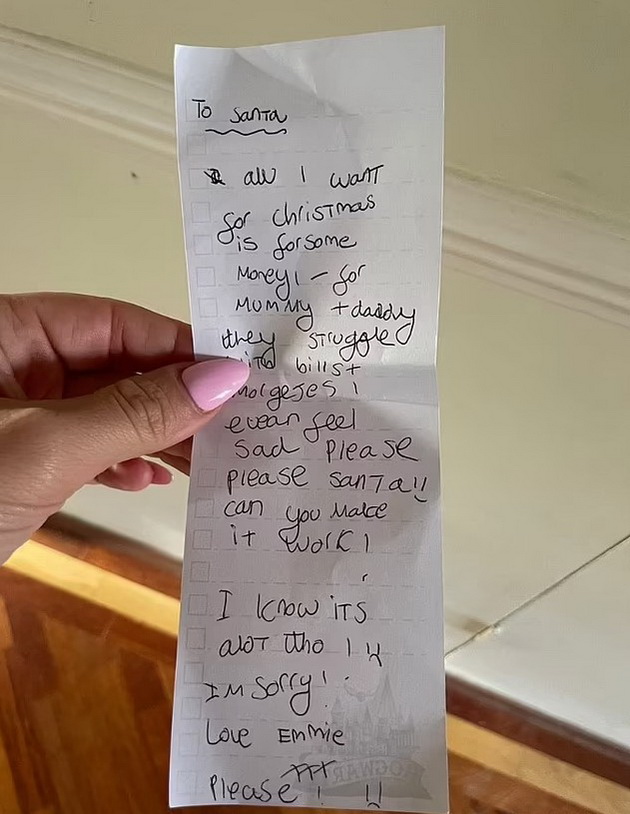 To Santa
all I want
for christmas
is forsome
Money! - for
MUMMY + daddy
they struggle
with bills +
morgeses I
evean feel
sad please
please santa!!
can you Make
it work!
I know its
alot tho !
IM Sorry!
Love EMMie
xxx
Please !
HOGWAR